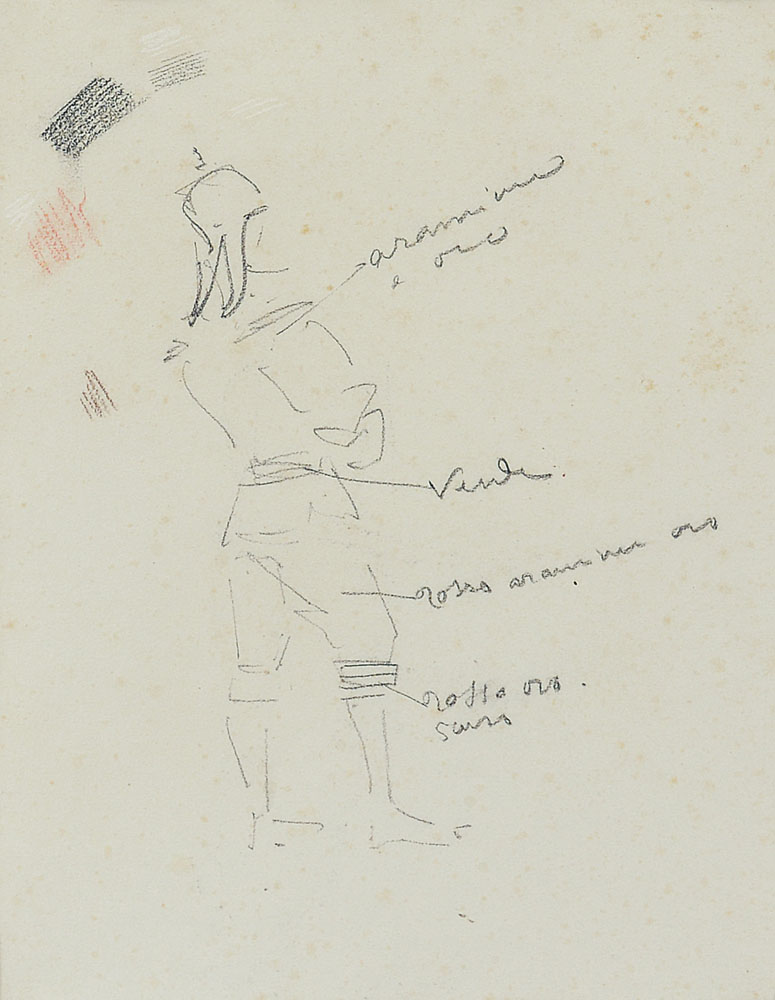 arancione
e oro
Verde.
rosso arancione oro
rosso oro.
scuro